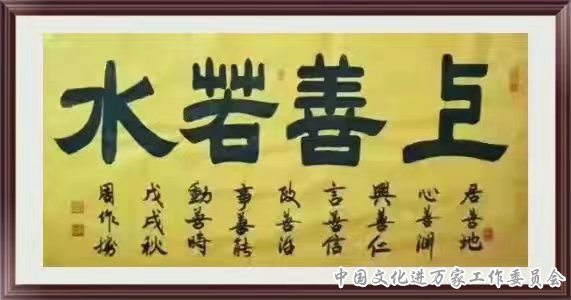 上善若水
居善地
心善淵
與善仁
言善信
政善治
事善能
動善時
戊戌秋
周作
中国文化进万家工作委员会